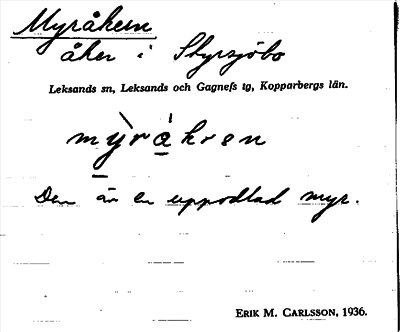 Myråkern
åker i Styrsjöbo
Leksands sn, Leksands och Gagnefs tg, Kopparbergs län.
mỳrákren
Den är en uppodlad myr.
ERIK M. CARLSSON, 1936.